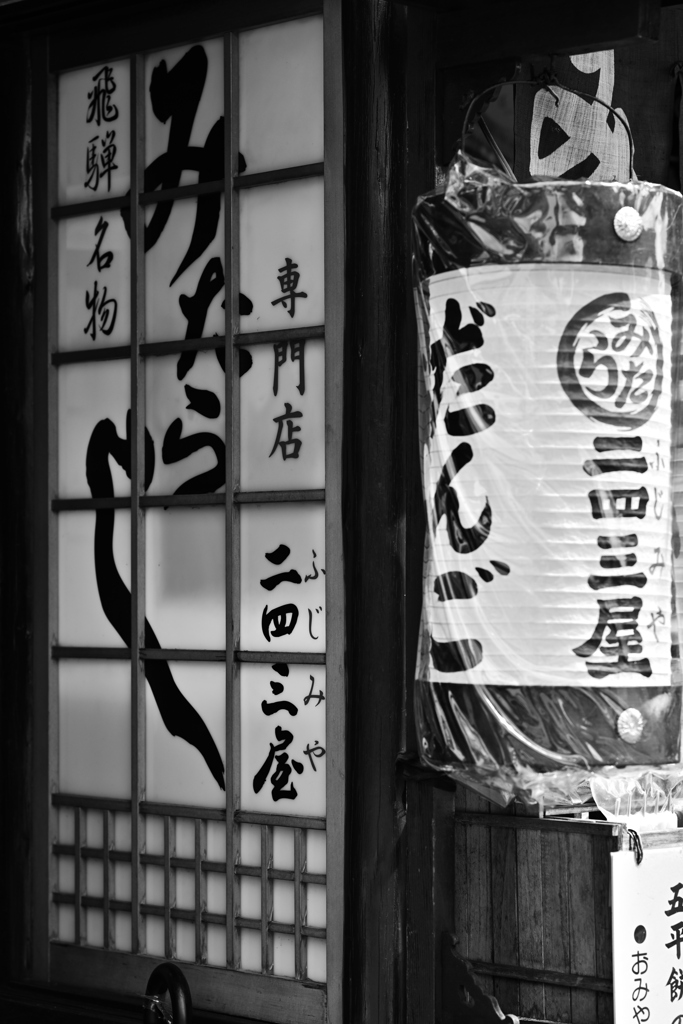 飛騨名物
みたらし
専門店
二四三屋
ふじみや
みたら
二四三屋
ふじみや
だんご
め
五平餅の
●おみや